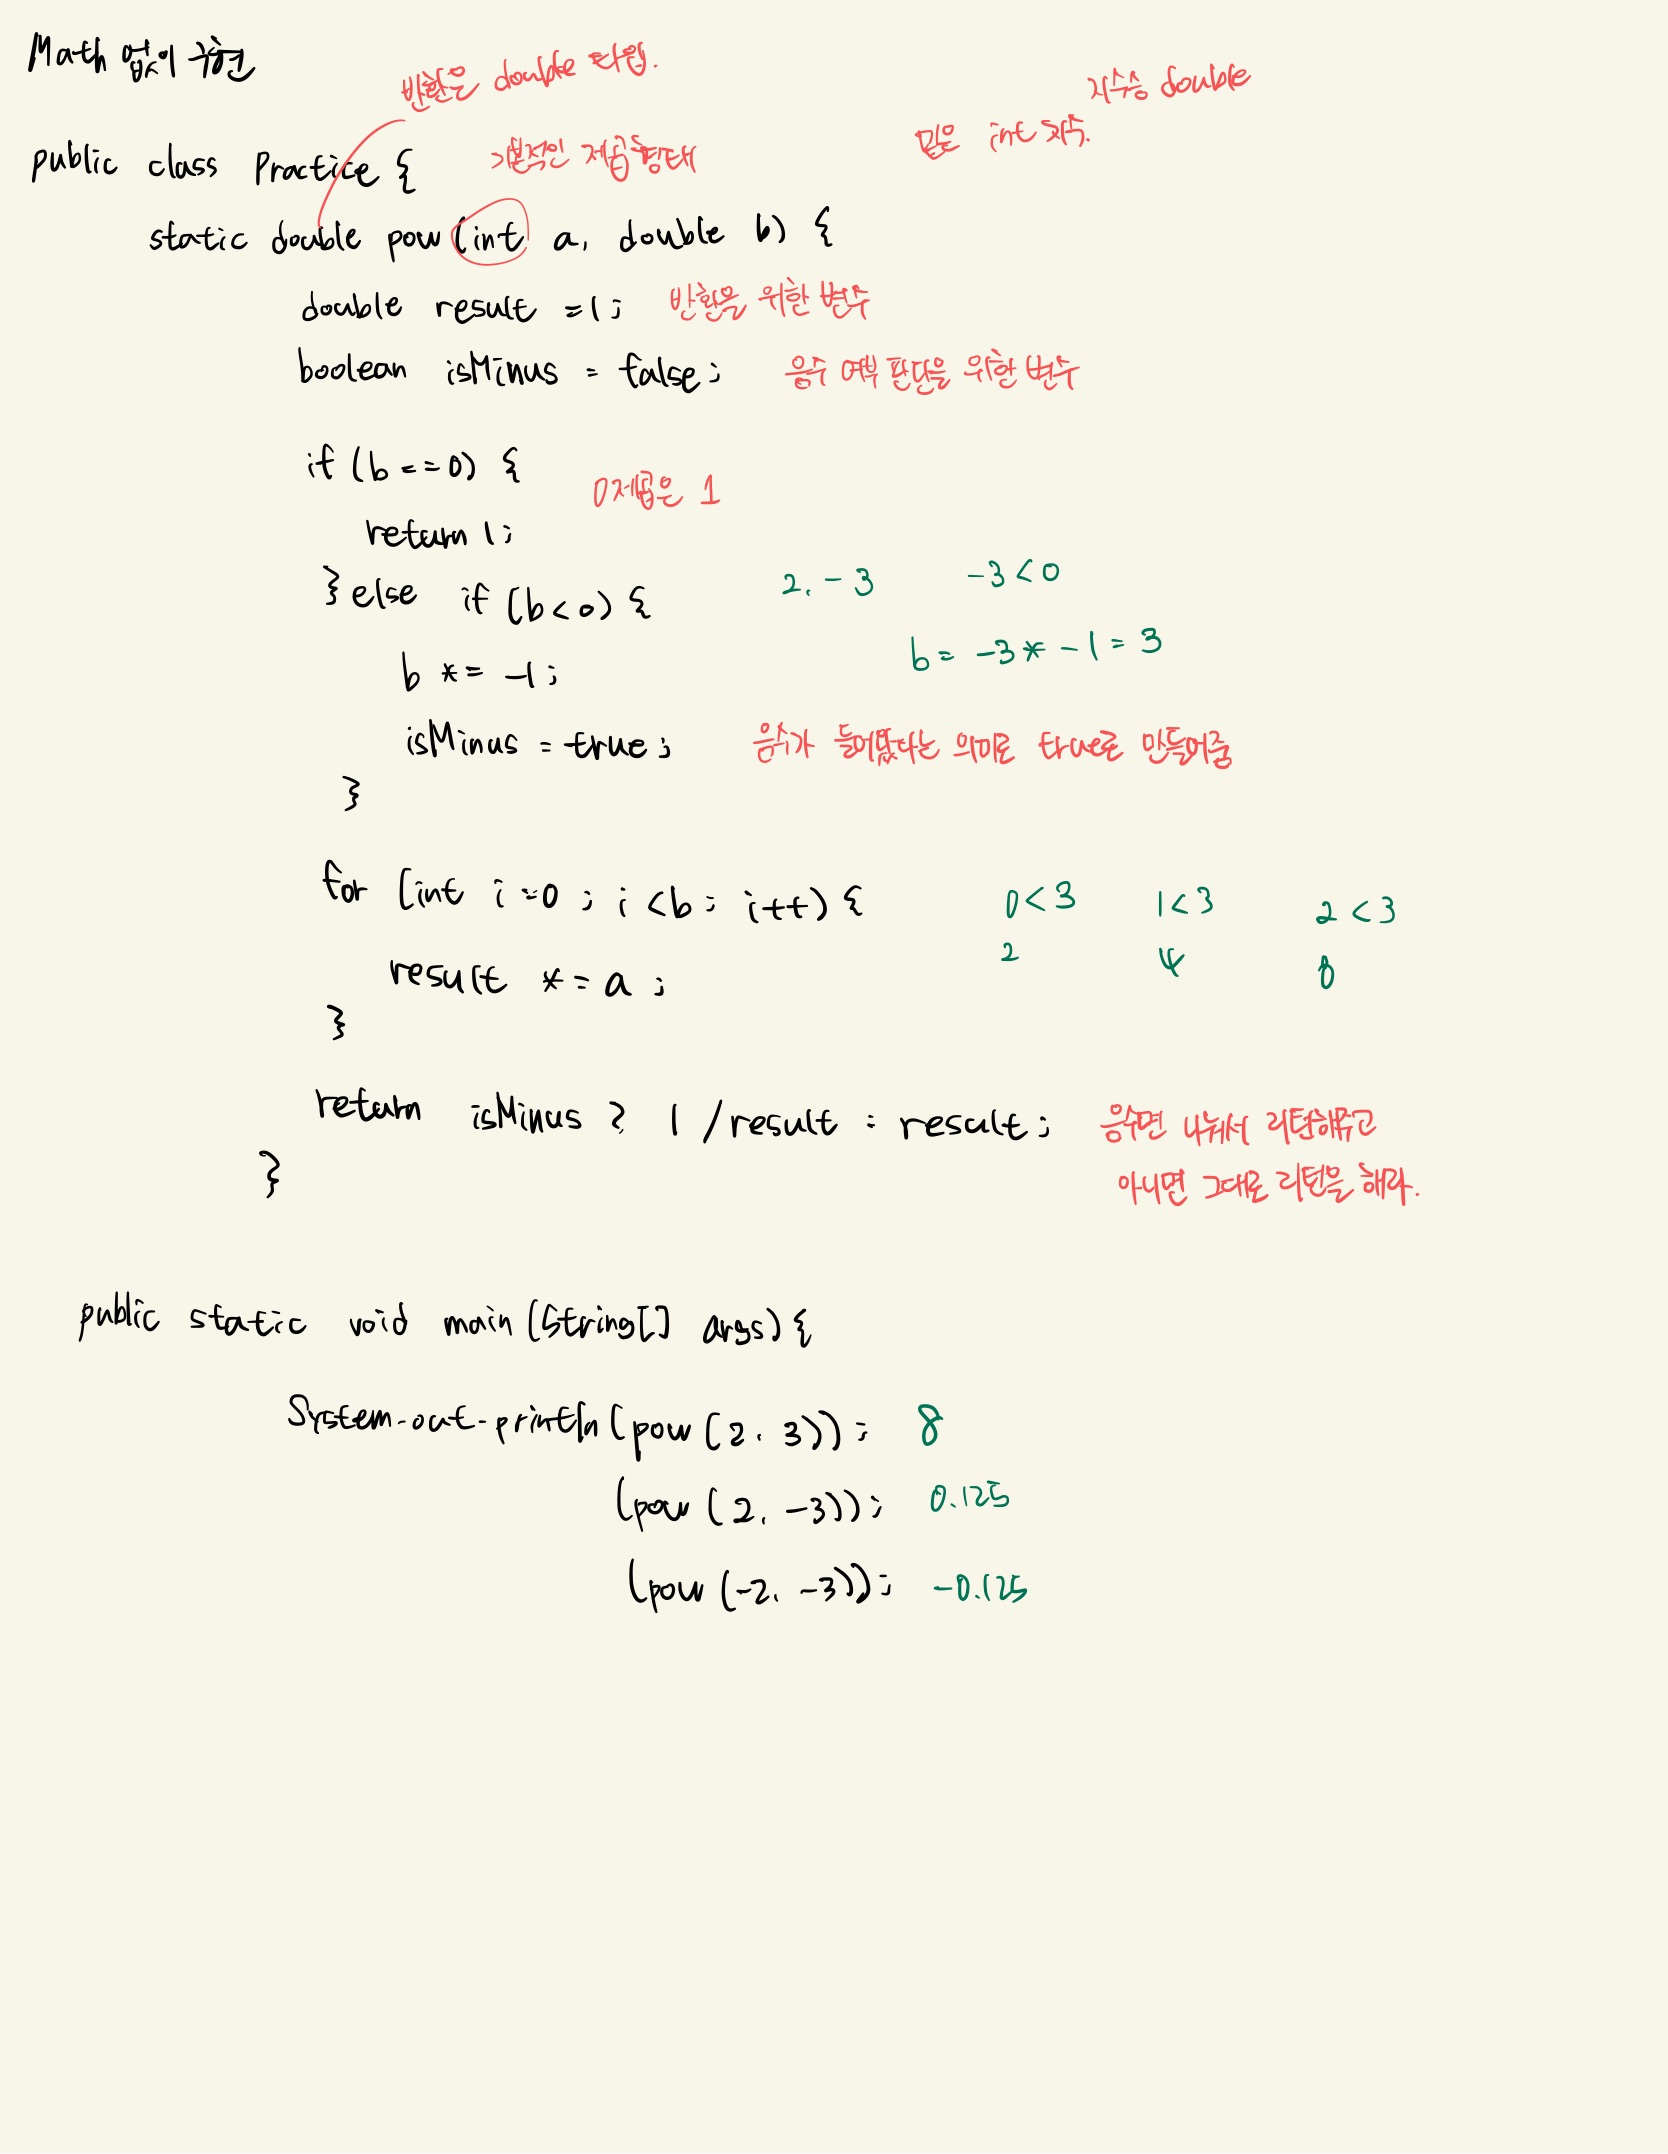 Math 없이 구현
반환은 double 타입.
지수승 double
밑은 int 지수.
기본적인 제곱형태
public class Practice {
static double pow (int a, double b) {
double result = 1; 반환을 위한 변수
boolean isMinus = false; 음수 여부 판단을 위한 변수
if (b == 0) {
0제곱은 1
return 1;
} else if (b < 0) { 2. -3 -3 < 0
b *= -1; b = -3 * -1 = 3
isMinus = true; 음수가 들어왔다는 의미로 true로 만들어줌
}
for (int i = 0 ; i < b ; i++) { 0 < 3 1 < 3 2 < 3
result *= a ; 2 4 8
}
return isMinus ? 1 / result : result; 음수면 나눠서 리턴해주고
} 아니면 그대로 리턴을 해라.
public static void main (String[] args) {
System.out.println (pow (2. 3)); 8
(pow (2. -3)); 0.125
(pow (-2. -3)); -0.125